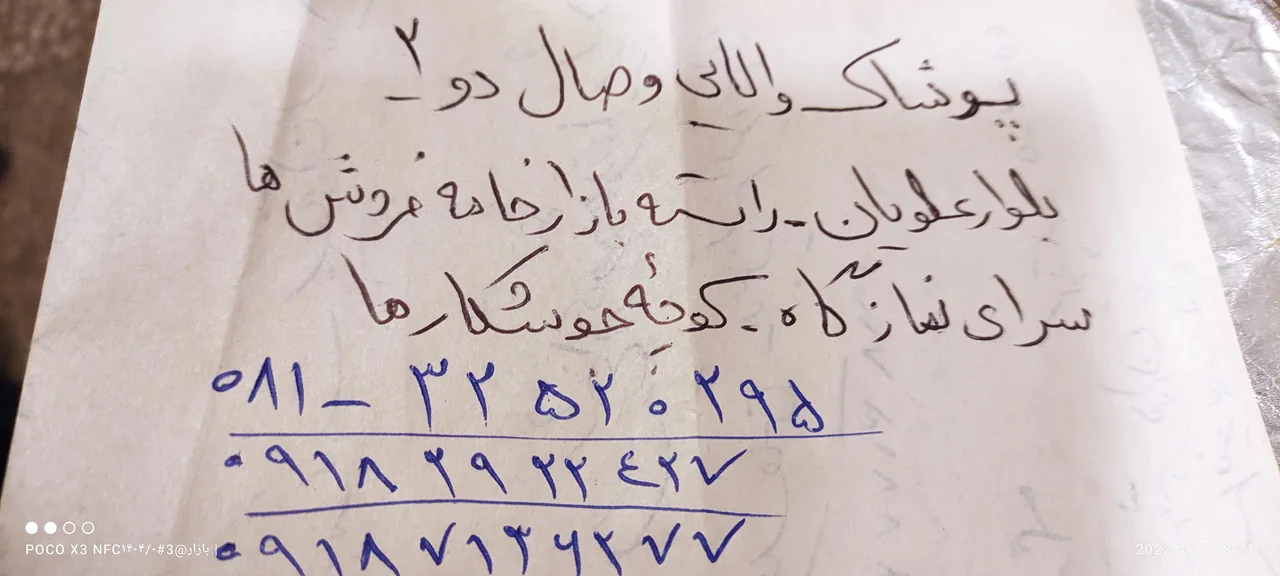 پوشاک والایی وصال دو - ۲
بلوار علویان - راسته بازار خامه فروش ها
سرای نمازگاه - کوچهٔ جوشکارها
۰۸۱ - ۳۲۵۲۰۲۹۵
۰۹۱۸۲۹۲۲۴۲۷
۰۹۱۸۷۱۳۶۲۷۷
POCO X3 NFC۱۴۰۴/۰#3@بازار
2022.4.17 18:21